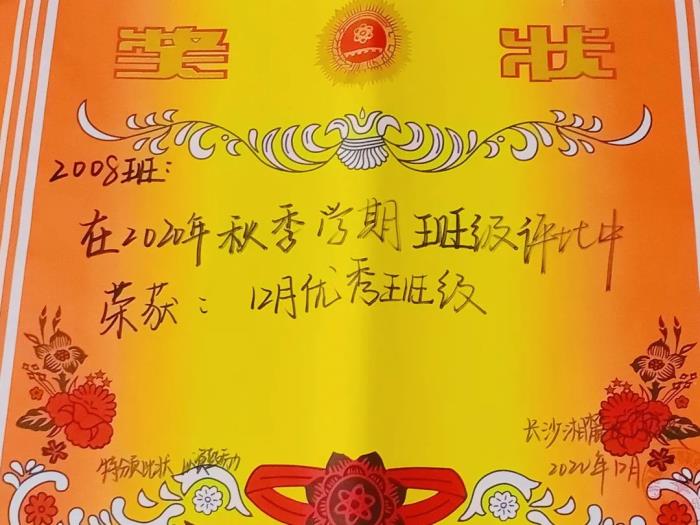 奖状
2008班:
在2020年秋季学期班级评比中
荣获: 12月优秀班级
特颁此状 以资鼓励
长沙湘
2020年12月